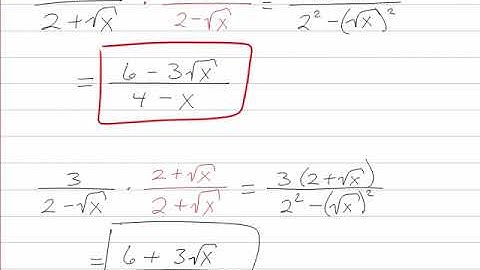 2 + √x · 2 - √x = 2² - (√x)²
= (6 - 3√x) / (4 - x)
3 / (2 - √x) · (2 + √x) / (2 + √x) = 3 (2 + √x) / (2² - (√x)²)
= 6 + 3√x